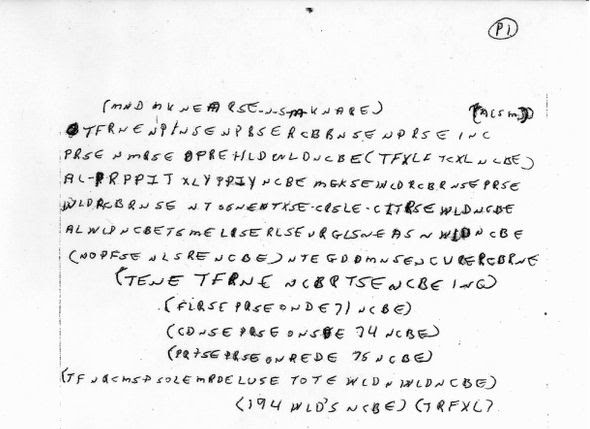 P1
(MND MKNEARSE-N-S-MKNARE) (ACSM)
TFRNENPINSENPBSERCBBNSENPRSEINC
PRSENMRSEOPREHLDWLDNCBE(TFXLFTCXLNCBE)
AL-PRPPIT XLYPPIYNCBE MGKSEWLDRCBRNSEPRSE
WLDRCBRNSE NTOSNENTXSE-CRSLE-CITRSEWLDNCBE
ALWLDNCBETSMELRSERLSEURGLSNEASNWLDNCBE
(NOPFSENLSRENCBE)NTEGDDMNSENCURERCBRNE
(TENE TFRNE NCBRTSENCBEING)
(FLRSEPRSEONDE71NCBE)
(CDNSEPRSEONSDE74NCBE)
(PRTSEPRSEONREDE75NCBE)
(TFNRCMSPSOLEMRDELUSETOTEWLDNWLDNCBE)
(194WLD'SNCBE)(TRFXL)